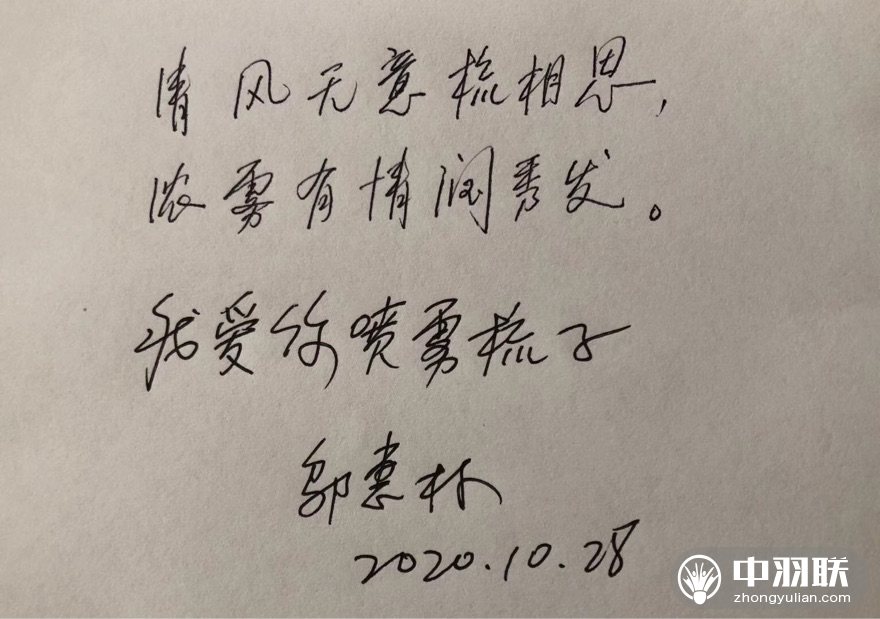 清风无意梳相思，
浓雾有情润秀发。
我爱你喷雾梳子
邬惠林
2020.10.28
中羽联
zhongyulian.com